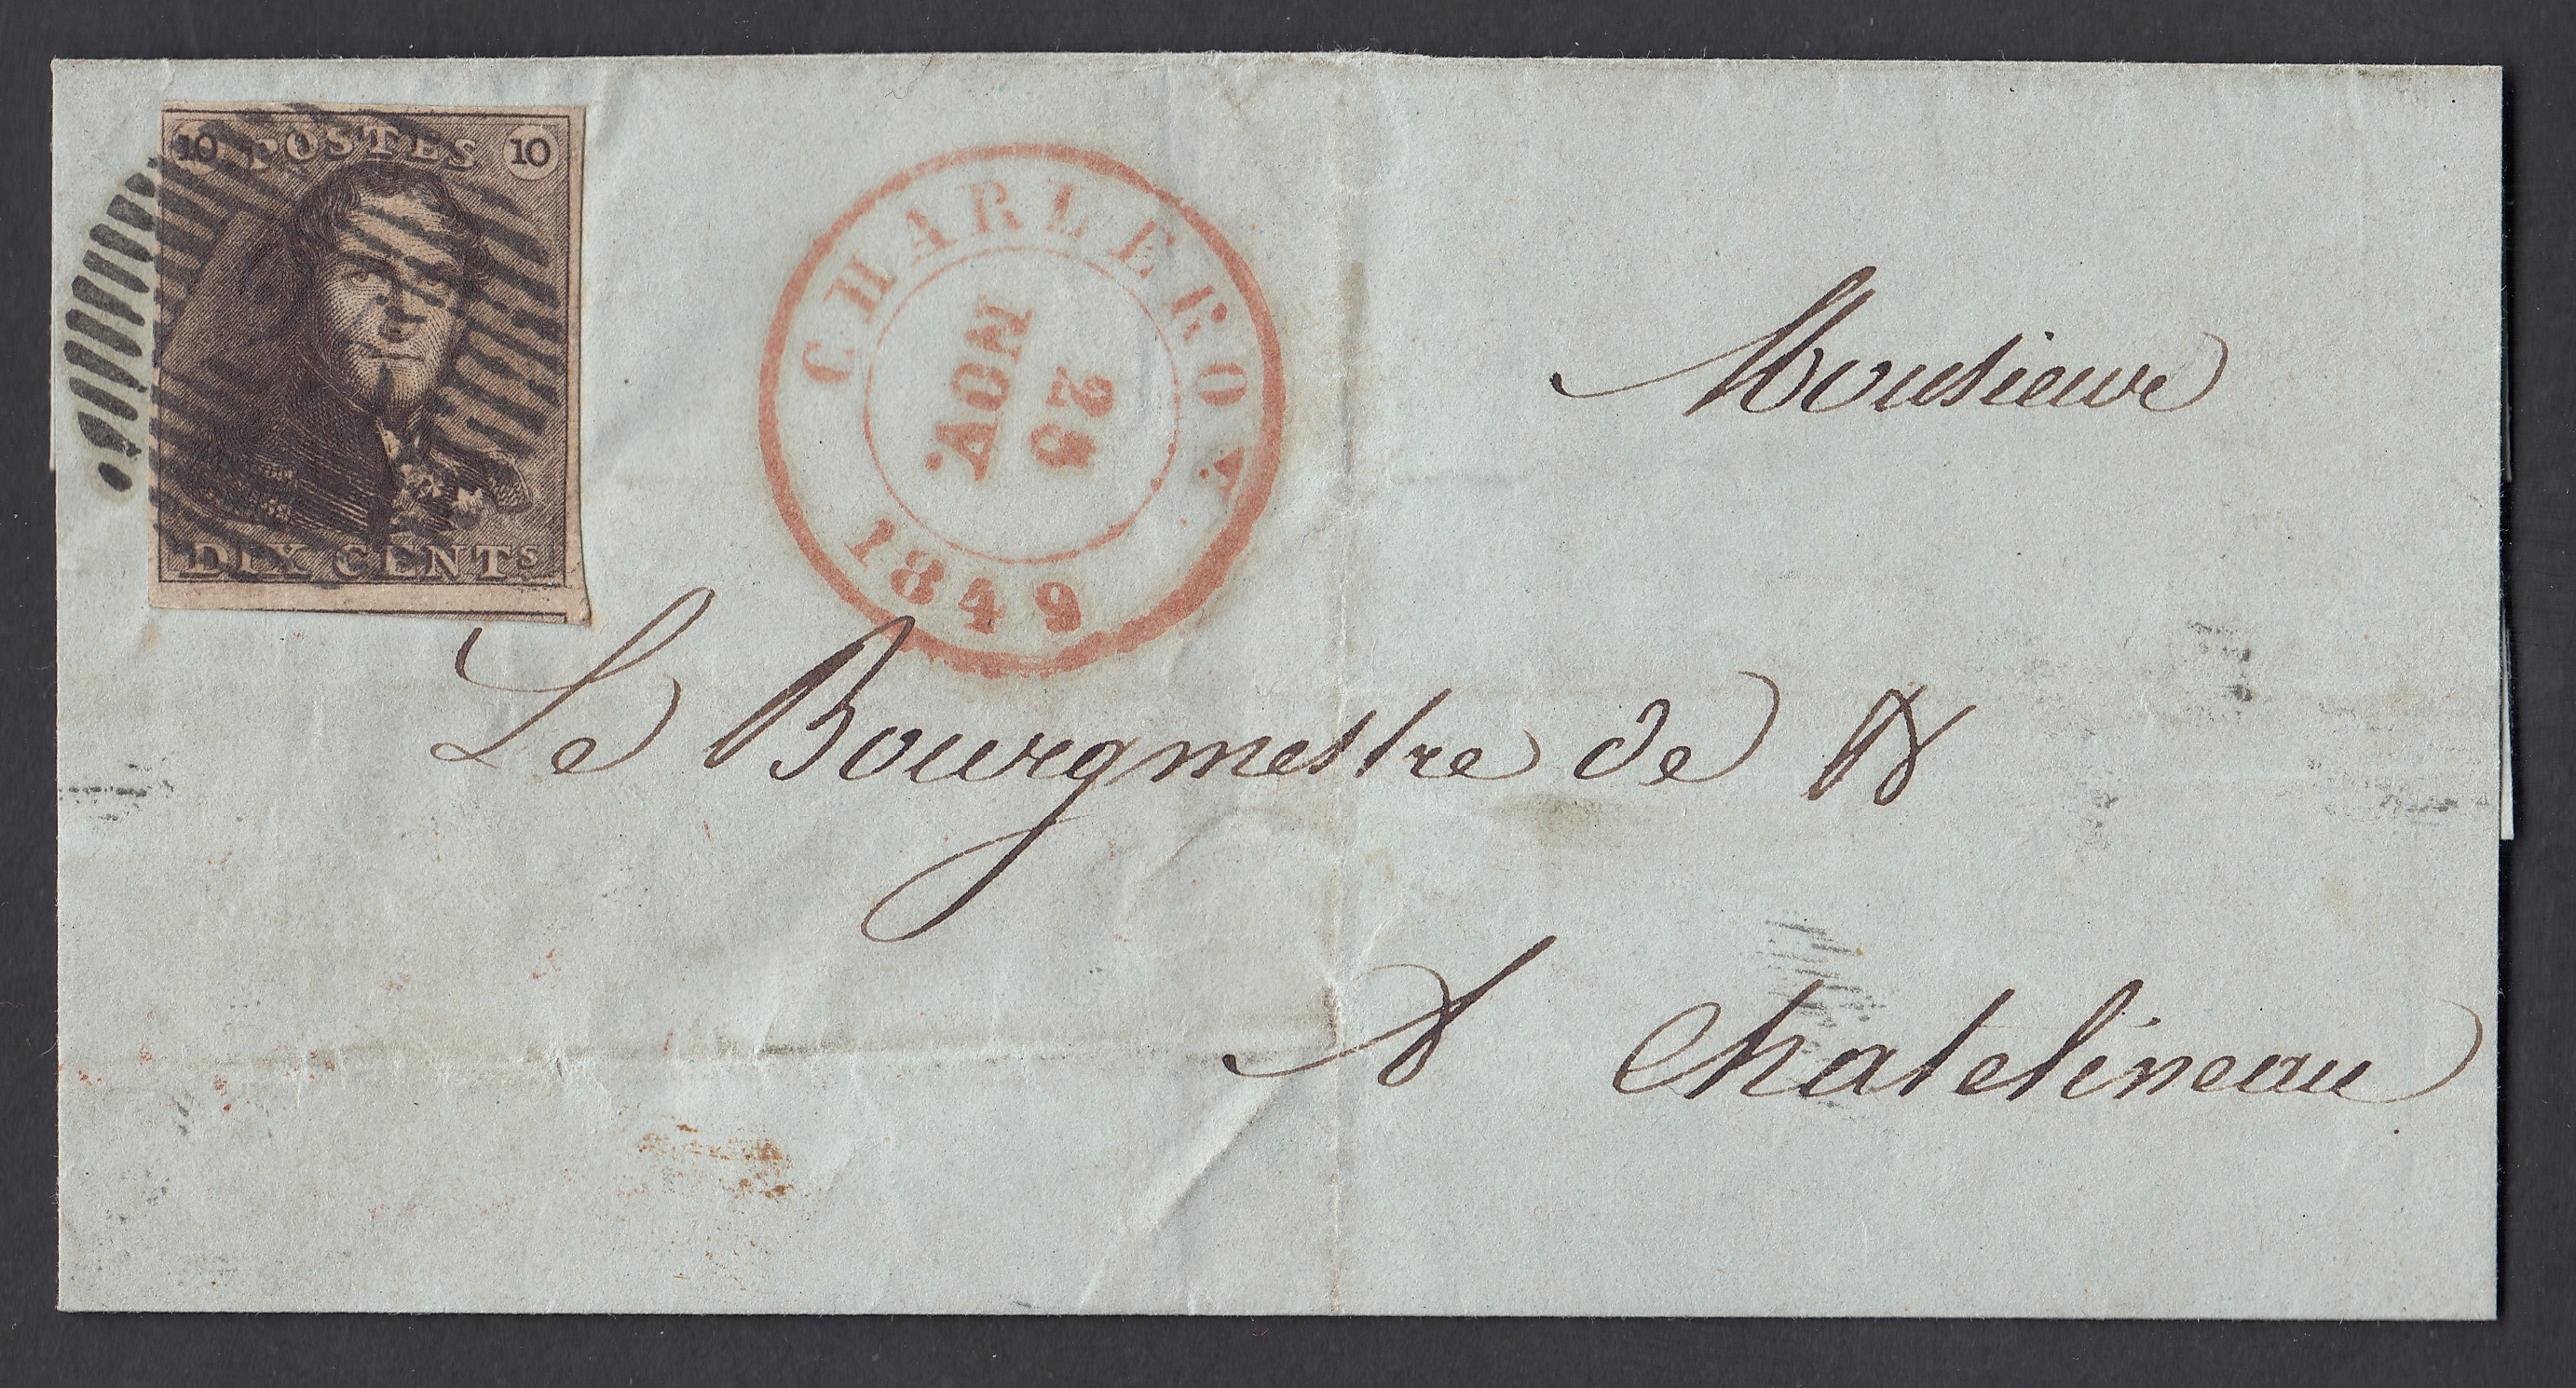 10 POSTES 10
DIX CENTs
CHARLEROY
NOV.
1849
Monsieur
Le Bourgmestre de &
A Chatelineau